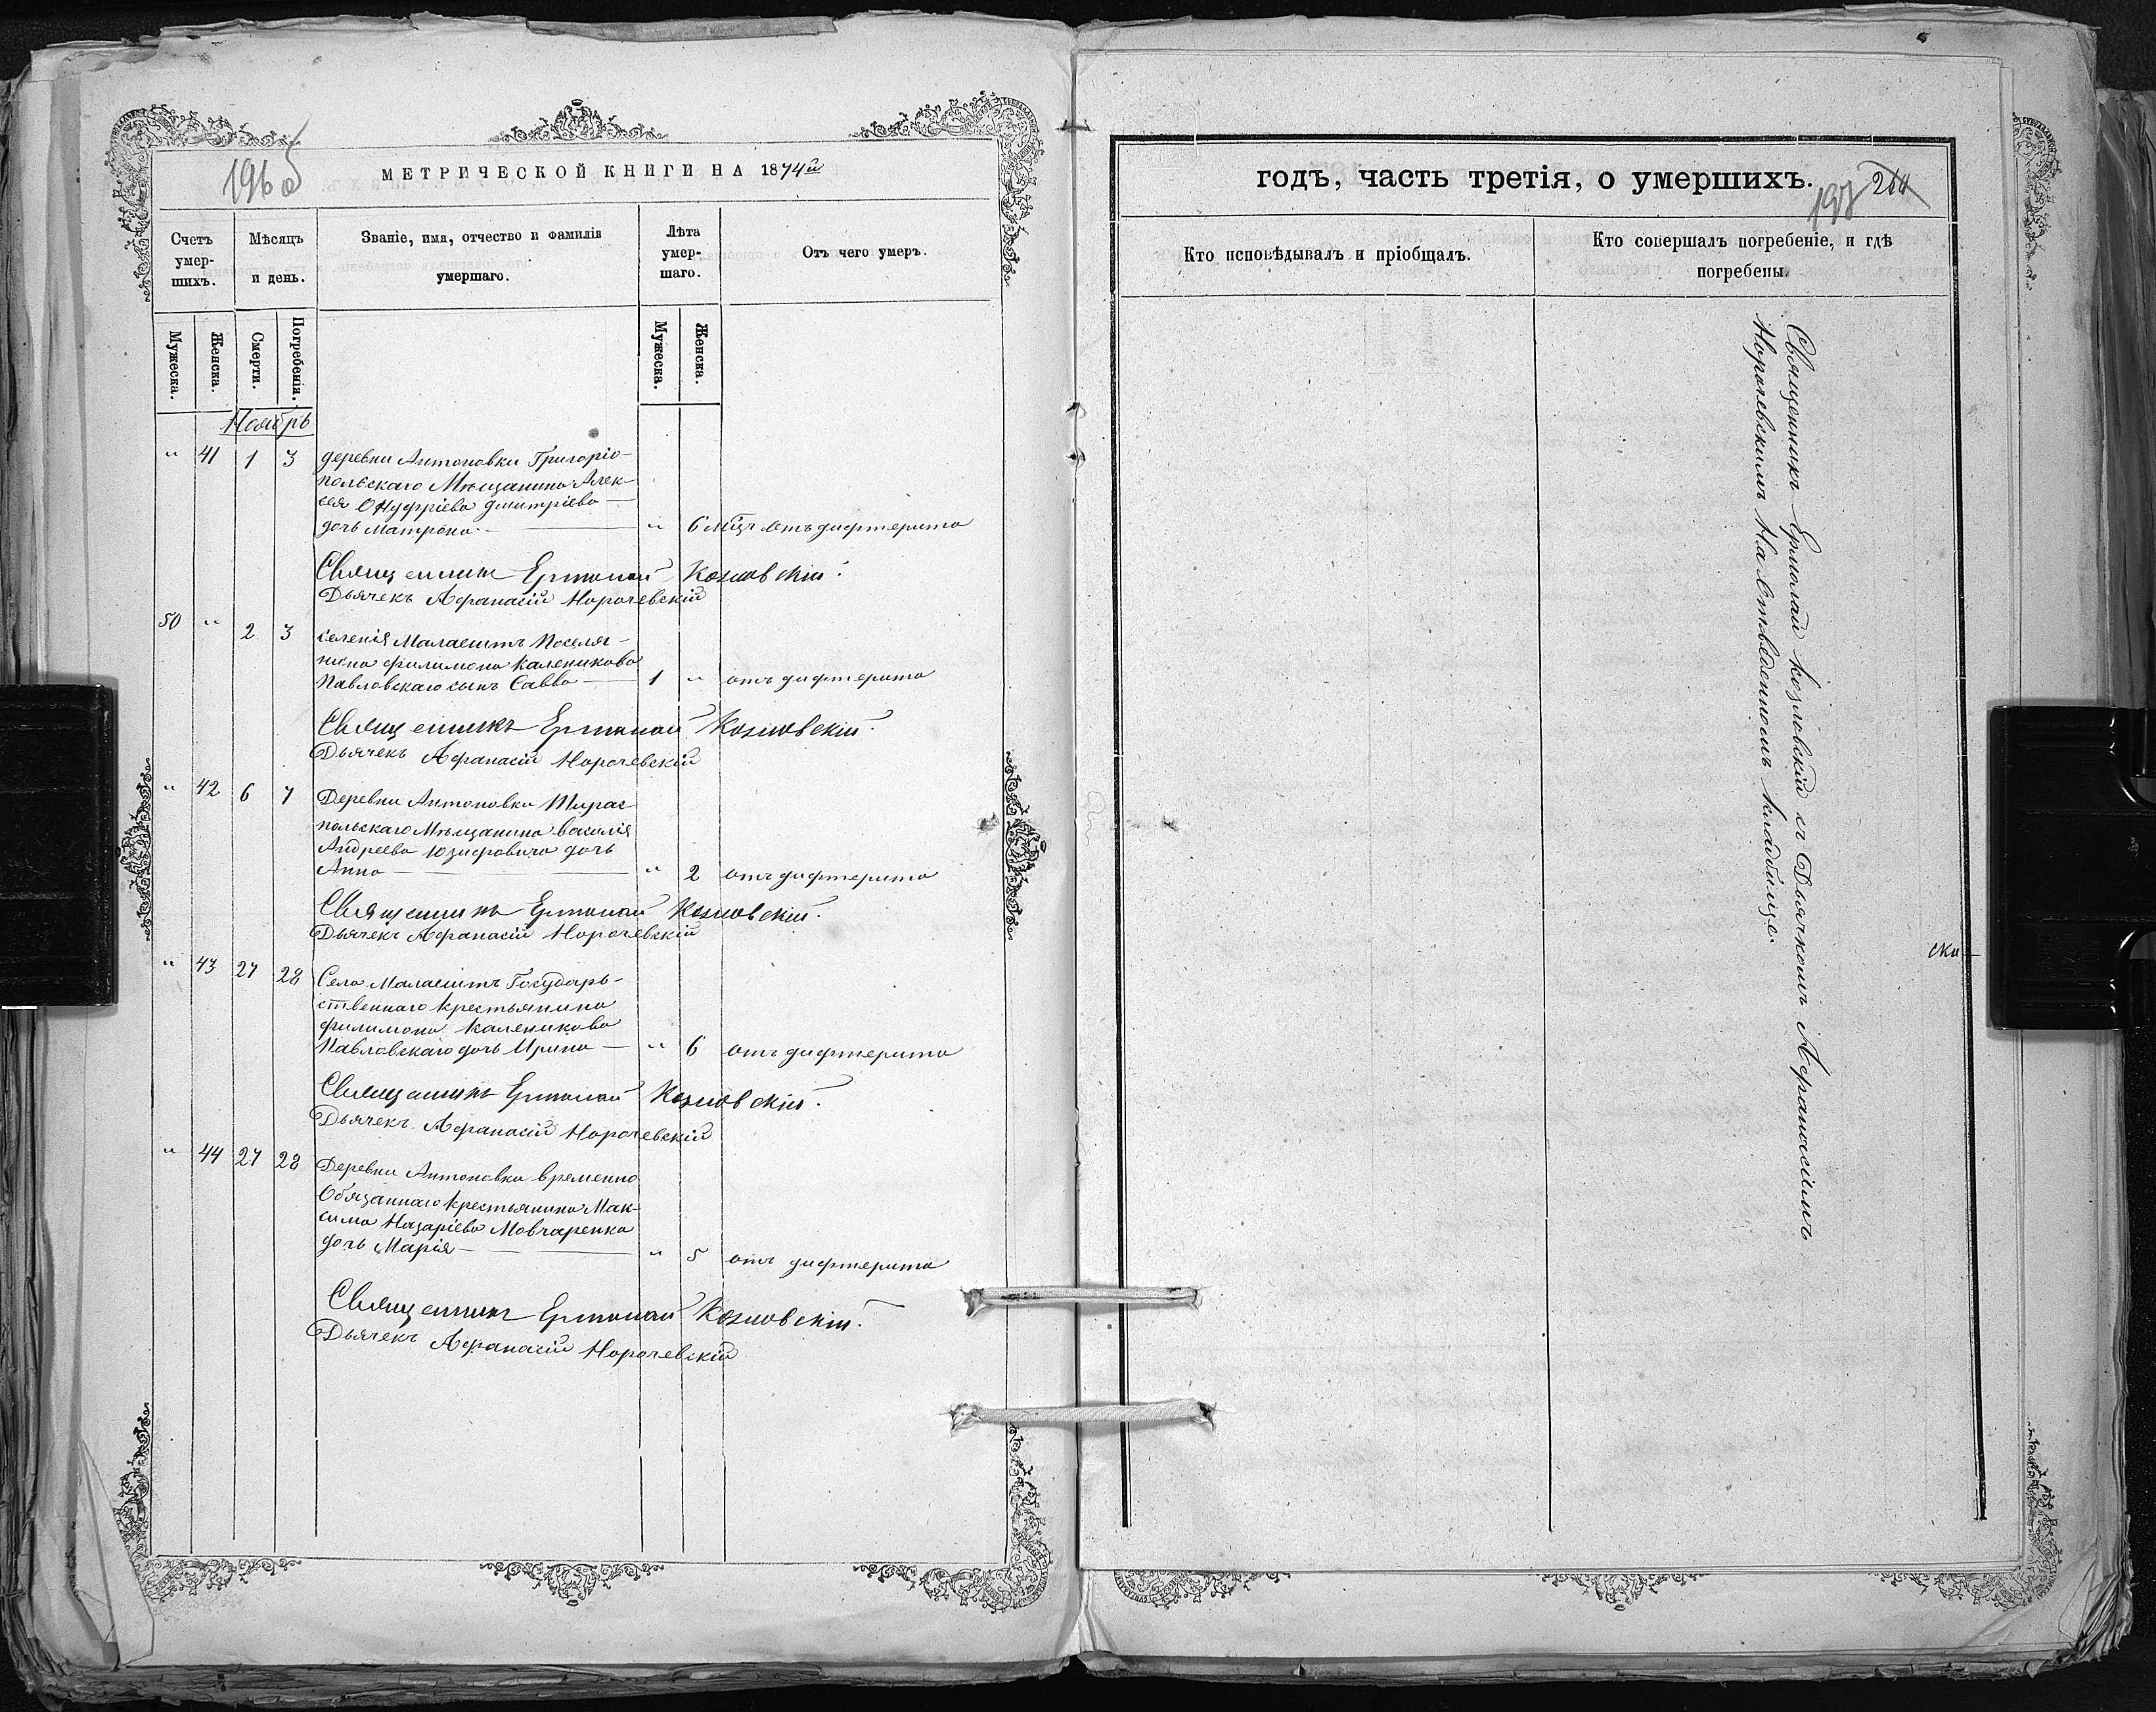 196 об
МЕТРИЧЕСКОЙ КНИГИ НА 1874й
Счетъ умер-шихъ.
Мѣсяцъ и день.
Званіе, имя, отчество и фамилія умершаго.
Лѣта умер-шаго.
Отъ чего умеръ.
Мужеска.
Женска.
Смерти.
Погребенія.
Мужеска.
Женска.
Ноябрь
" 41 1 3 деревни Антоновки Григоріо-
польскаго Мѣщанина Алек-
сея Онуфріева Дмитріева
дочь Матрона " 6 мѣц отъ дифтерита
Священникъ Ермолай Козловскій.
Дьячекъ Афанасій Норочевскій
50 " 2 3 селенія Малаештъ Поселя-
нина филимона Каленикова
Павловскаго сынъ Савва 1 " отъ дифтерита
Священникъ Ермолай Козловскій.
Дьячекъ Афанасій Норочевскій
" 42 6 7 Деревни Антоновки Тирас-
польскаго Мѣщанина Василія
Андреева Юзифовича дочь
Анна " 2 отъ дифтерита
Священникъ Ермолай Козловскій.
Дьячекъ Афанасій Норочевскій
" 43 27 28 Села Малаештъ Государь-
ственнаго крестьянина
филимона Каленикова
Павловскаго дочь Ирина " 6 отъ дифтерита
Священникъ Ермолай Козловскій.
Дьячекъ Афанасій Норочевскій
" 44 27 28 Деревни Антоновки временно
Обязаннаго крестьянина Мак-
сима Назаріева Мовчаренка
дочь Марія " 5 отъ дифтерита
Священникъ Ермолай Козловскій.
Дьячекъ Афанасій Норочевскій
годъ, часть третія, о умершихъ.
197 264
Кто исповѣдывалъ и пріобщалъ.
Кто совершалъ погребеніе, и гдѣ
погребены.
Священникъ Ермолай Козловскій съ Дьячкомъ Афанасіемъ
Норочевскимъ на Отведенномъ кладбище.
ски